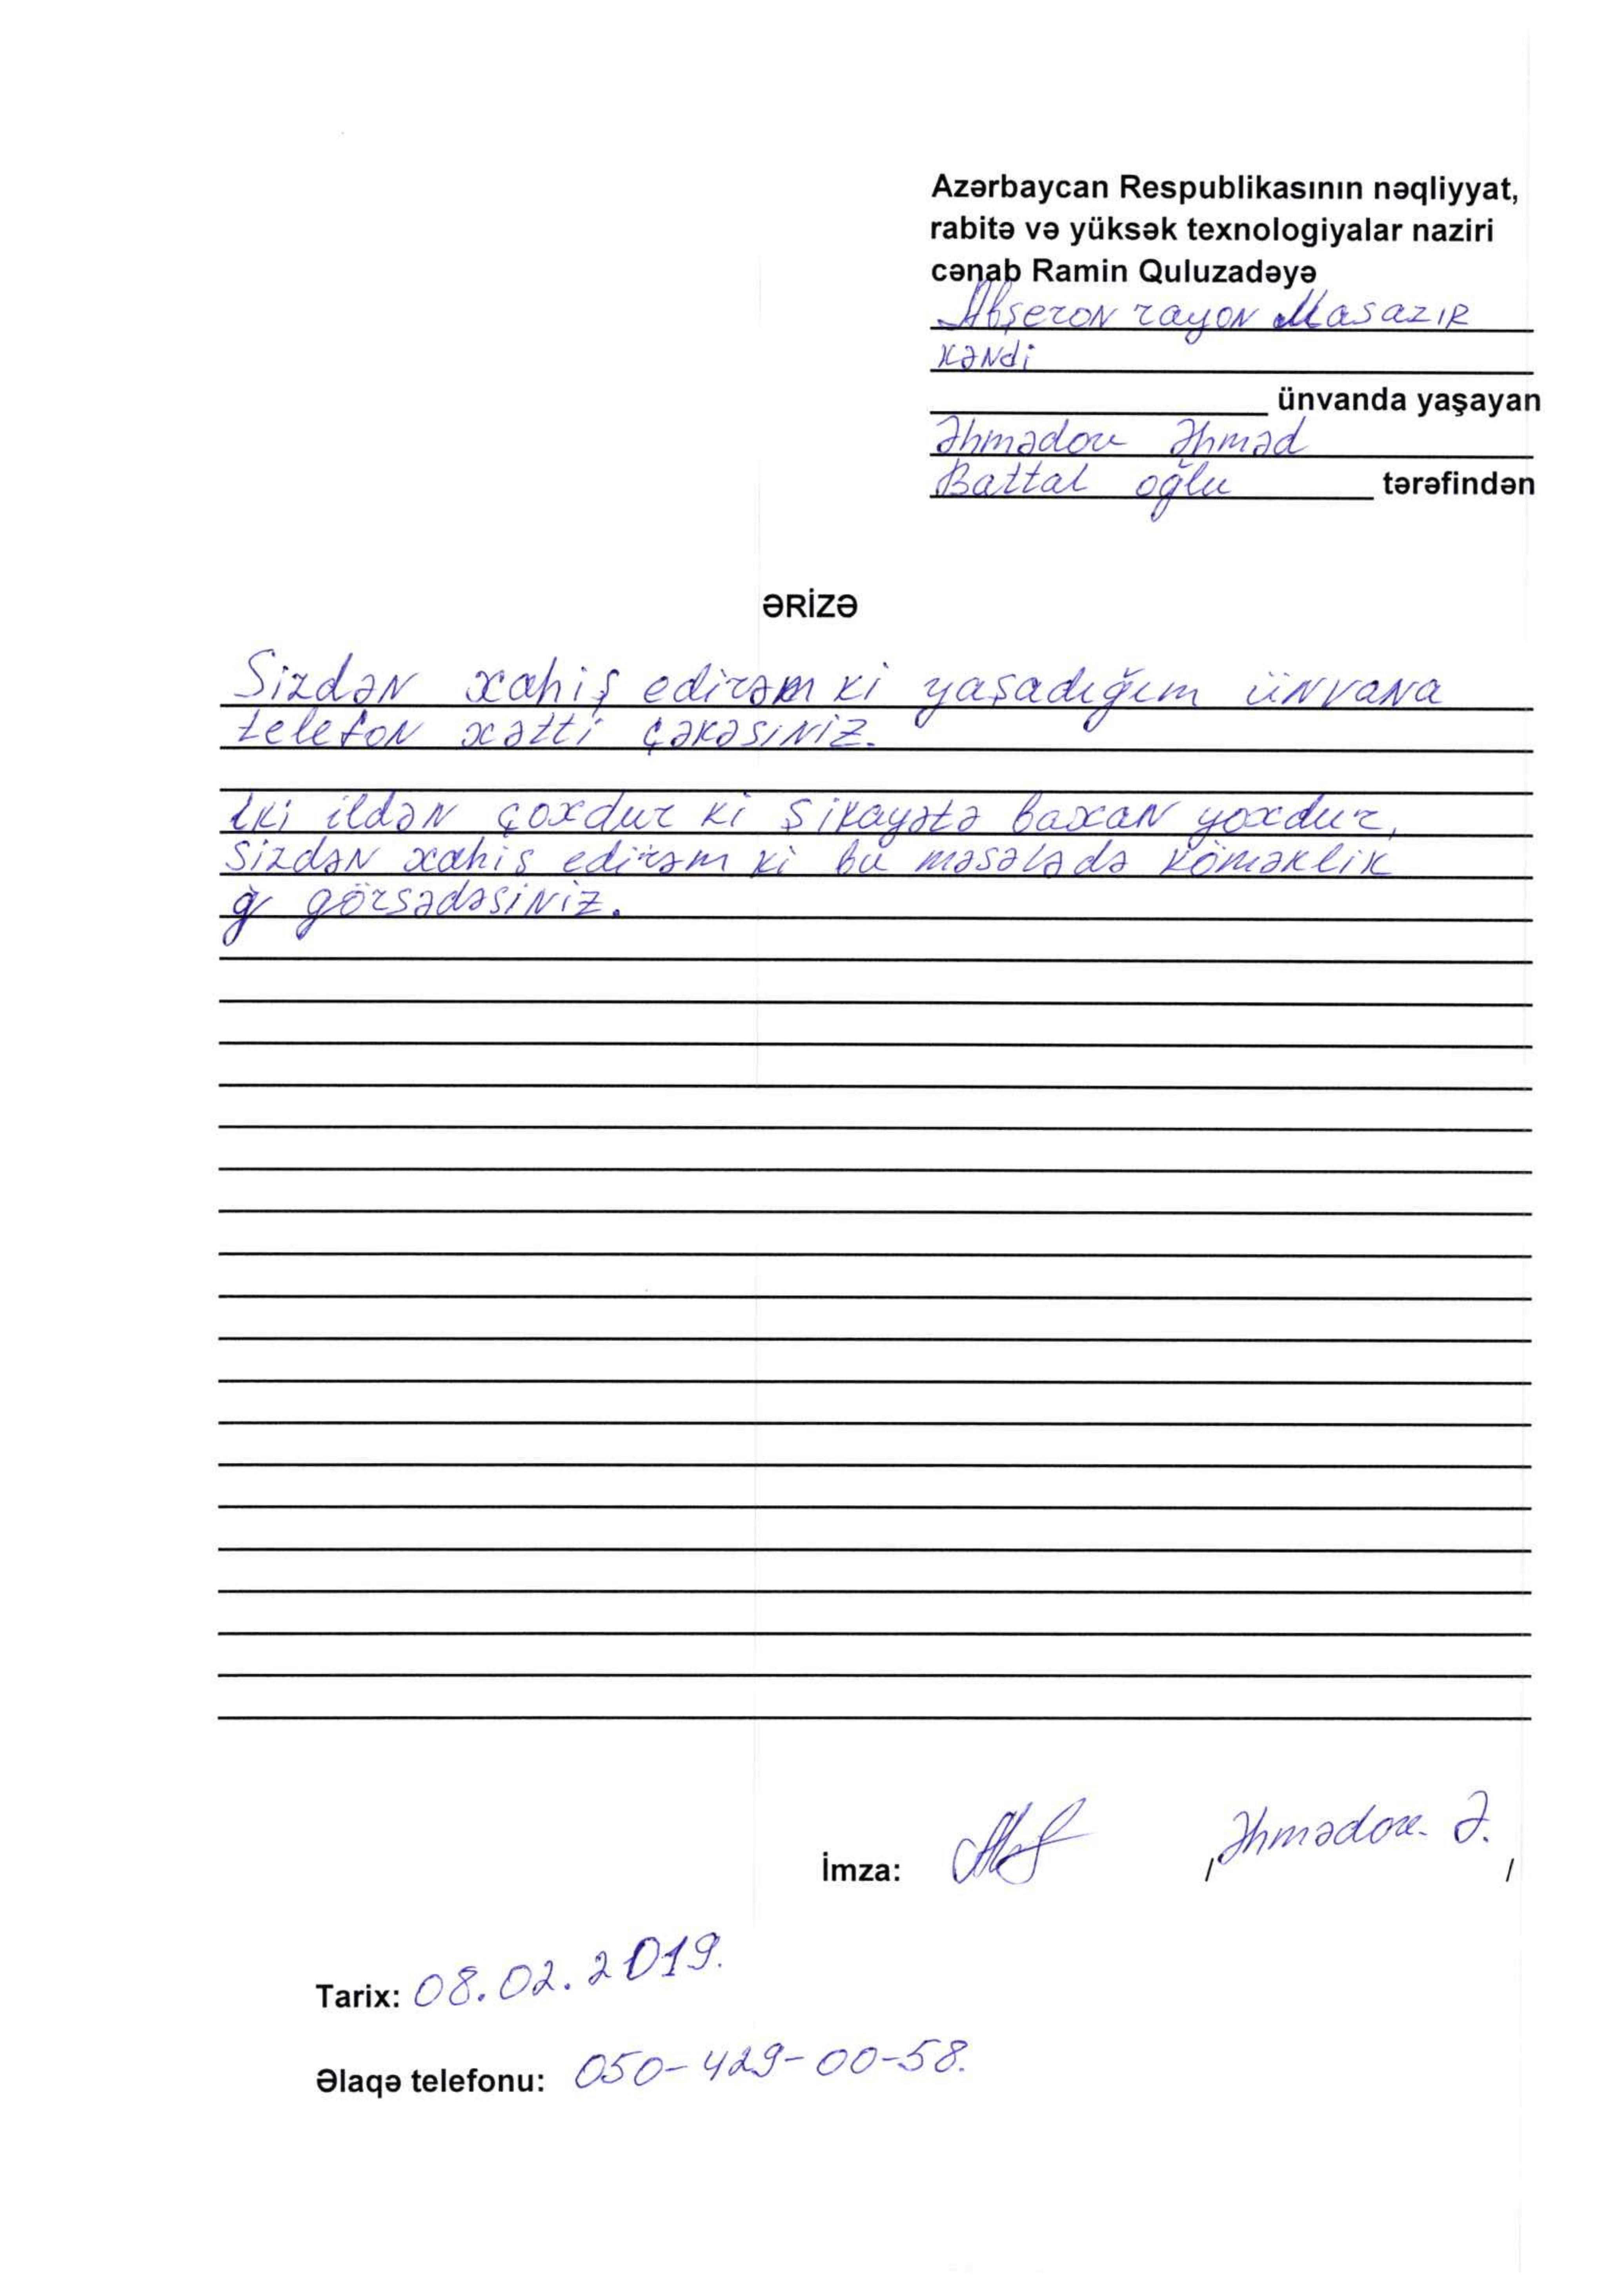 Azərbaycan Respublikasının nəqliyyat,
rabitə və yüksək texnologiyalar naziri
cənab Ramin Quluzadəyə
Abşeron rayon Masazır
kəndi
ünvanda yaşayan
Əhmədov Əhməd
Battal oğlu tərəfindən
ƏRİZƏ
Sizdən xahiş edirəm ki yaşadığım ünvana
telefon xətti çəkəsiniz.
iki ildən çoxdur ki şikayətə baxan yoxdur,
Sizdən xahiş edirəm ki bu məsələdə köməklik
görsədəsiniz.
İmza: / Əhmədov Ə. /
Tarix: 08.02.2019.
Əlaqə telefonu: 050-429-00-58.